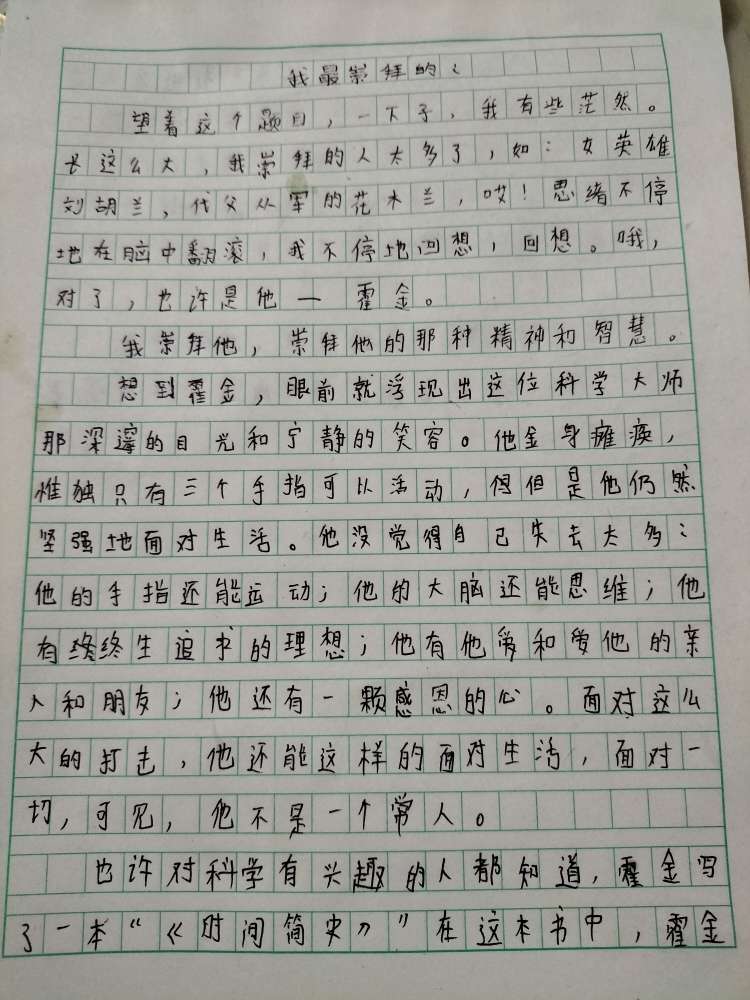 我最崇拜的人
望着这个题目，一下子，我有些茫然。
长这么大，我崇拜的人太多了，如：女英雄
刘胡兰，代父从军的花木兰，哎！思绪不停
地在脑中翻滚，我不停地回想，回想。哦，
对了，也许是他——霍金。
我崇拜他，崇拜他的那种精神和智慧。
想到霍金，眼前就浮现出这位科学大师
那深邃的目光和宁静的笑容。他全身瘫痪，
惟独只有三个手指可以活动，得但是他仍然
坚强地面对生活。他没觉得自己失去太多：
他的手指还能运动；他的大脑还能思维；他
有终终生追求的理想；他有他爱和爱他的亲
人和朋友；他还有一颗感恩的心。面对这么
大的打击，他还能这样的面对生活，面对一
切，可见，他不是一个常人。
也许对科学有兴趣的人都知道，霍金写
了一本“《时间简史》”在这本书中，霍金